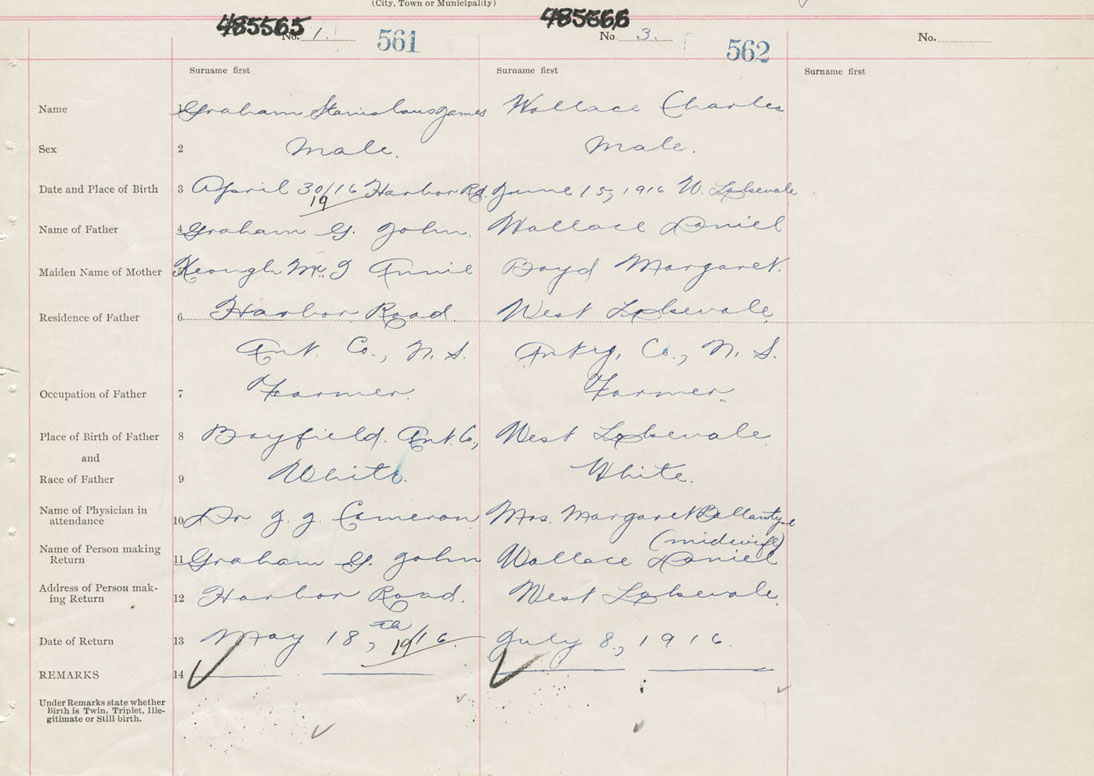 (City, Town or Municipality)
485565 485566
No. 1. 561 No 3. 562 No.
Surname first Surname first Surname first
Name 1 Graham Stanislaus James Wallace Charles
Sex 2 Male. Male.
Date and Place of Birth 3 April 30/16 Harbor Rd. June 15, 1916 W. Lakevale
19
Name of Father 4 Graham G. John. Wallace Daniel
Maiden Name of Mother Keough Mc. I Annie Boyd Margaret.
Residence of Father 6 Harbor Road. West Lakevale,
Ant. Co., N. S. Antig, Co., N. S.
Occupation of Father 7 Farmer. Farmer.
Place of Birth of Father 8 Bayfield. Ant. Co., West Lakevale.
and
Race of Father 9 White. White.
Name of Physician in
attendance 10 Dr J. J. Cameron Mrs. Margaret Ballantyne
(midwife)
Name of Person making
Return 11 Graham G. John Wallace Daniel
Address of Person mak-
ing Return 12 Harbor Road. West Lakevale.
Date of Return 13 May 18,th 19/16. July 8., 1916.
REMARKS 14
Under Remarks state whether
Birth is Twin, Triplet, Ille-
gitimate or Still-birth.